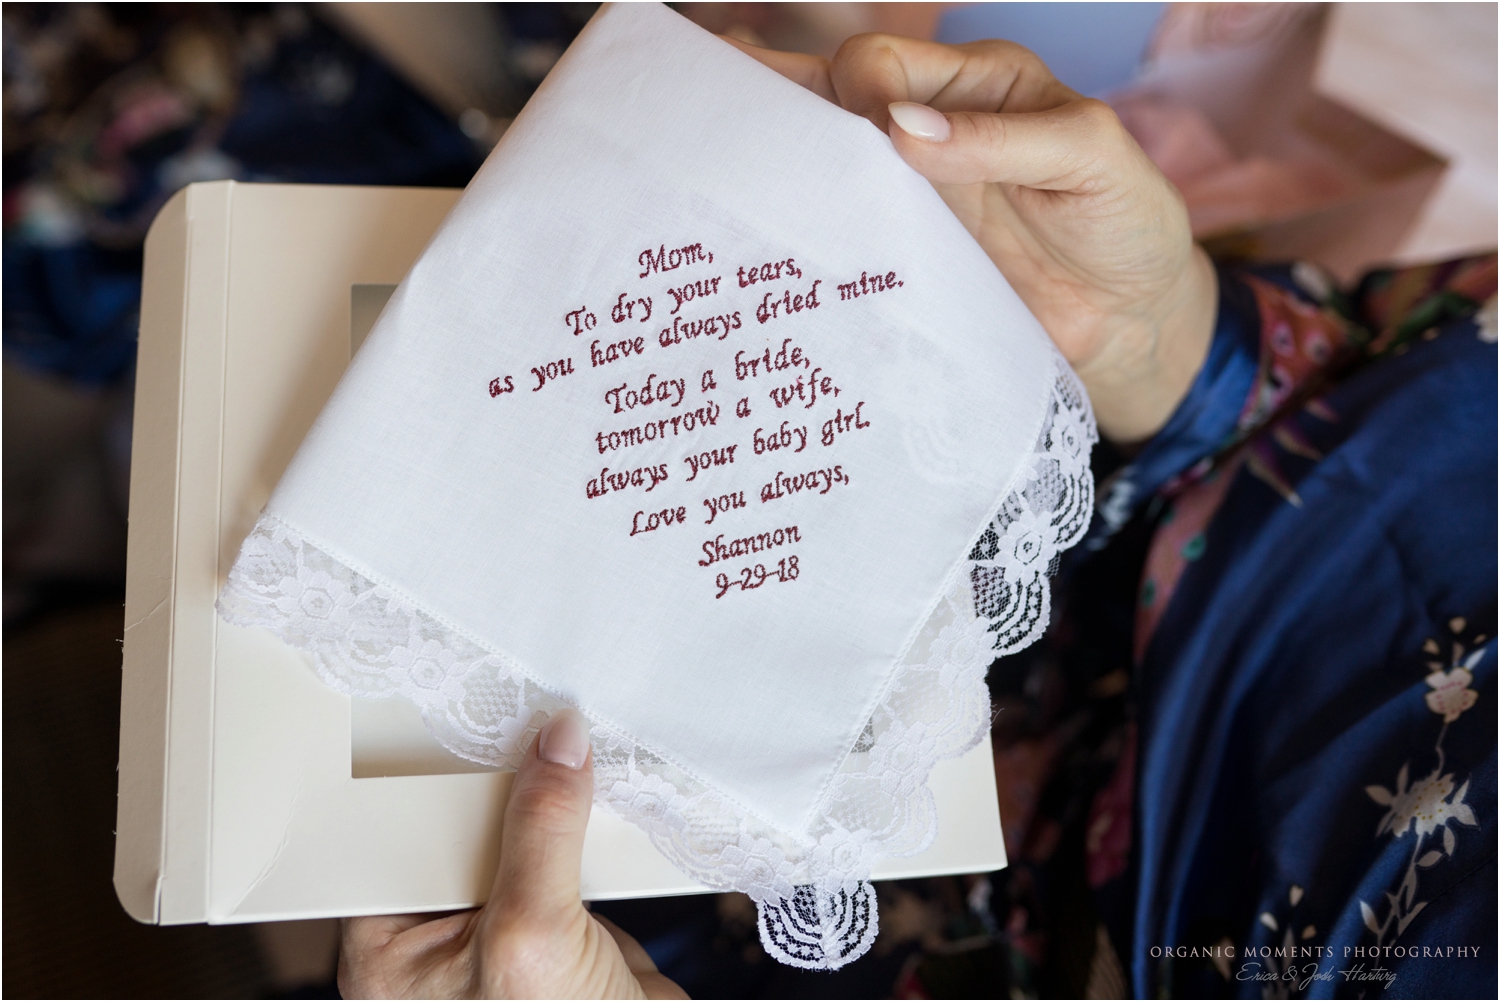 Mom,
To dry your tears,
as you have always dried mine.
Today a bride,
tomorrow a wife,
always your baby girl.
Love you always,
Shannon
9-29-18
ORGANIC MOMENTS PHOTOGRAPHY
Erica & Josh Hartwig